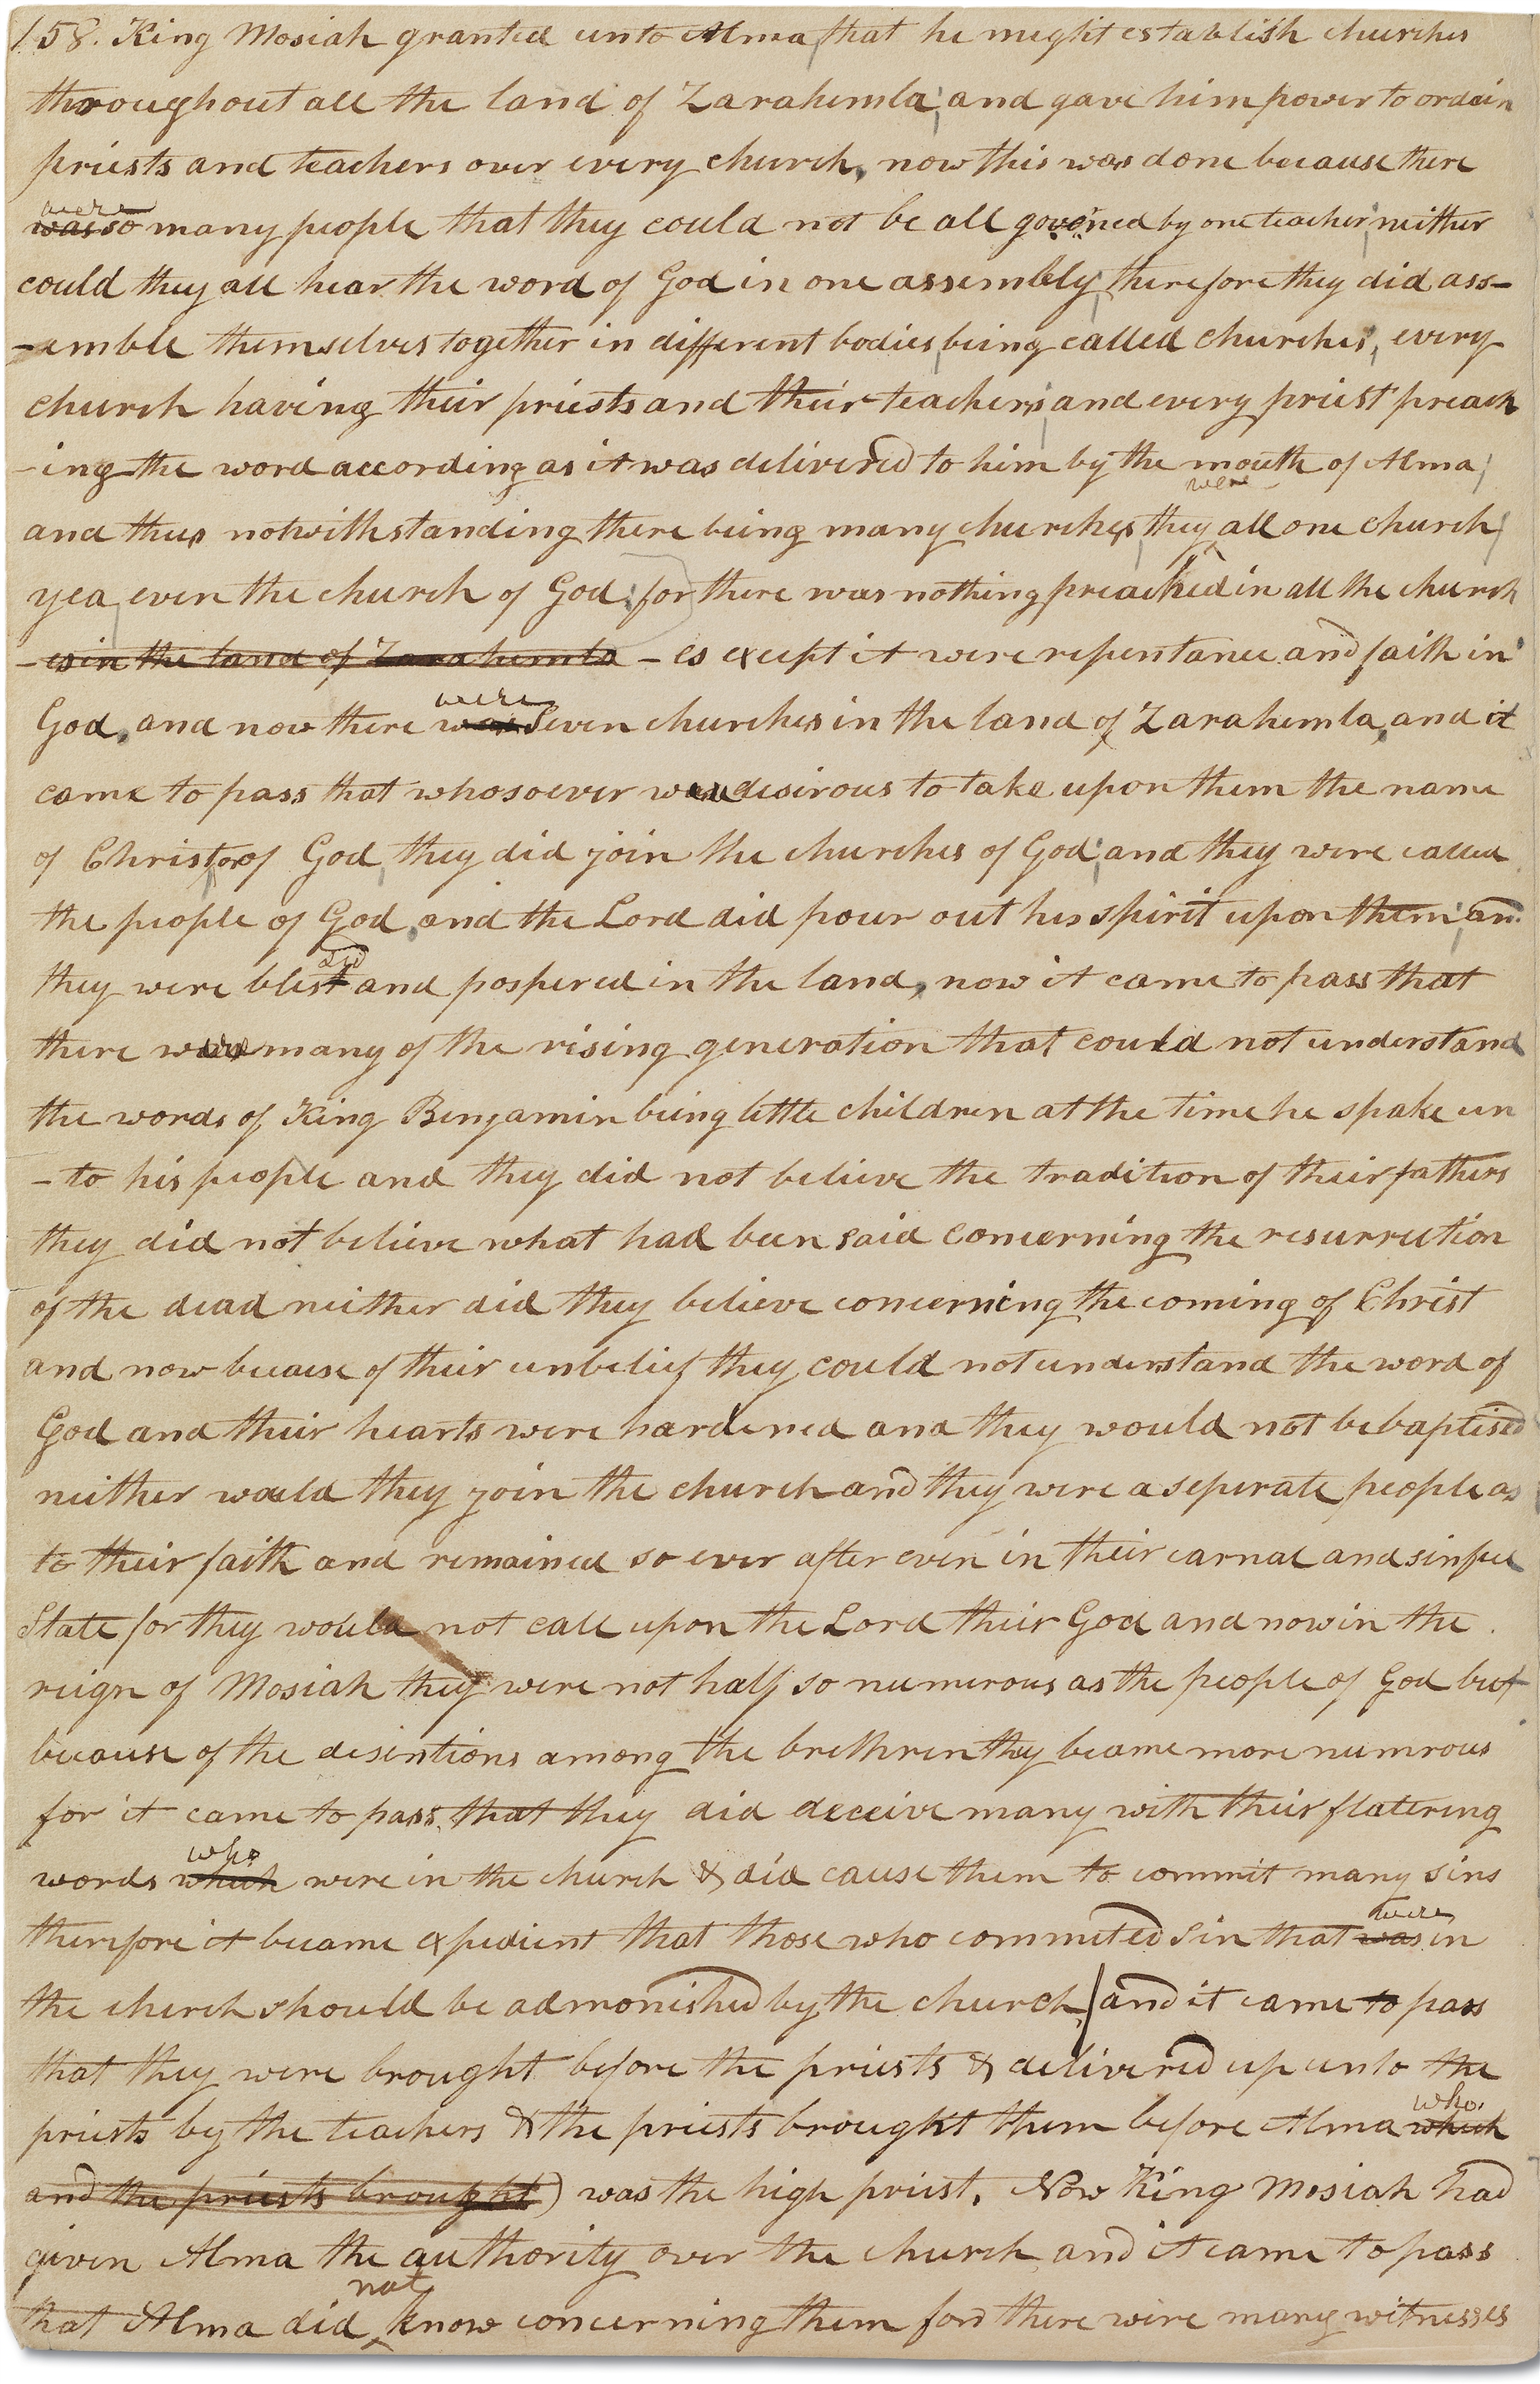 158. King Mosiah granted unto Alma, that he might establish churches
throughout all the land of Zarahemla; and gave him power to ordain
priests and teachers over every church, now this was done because there
were
was so many people that they could not be all governed by one teacher; neither
could they all hear the word of God in one assembly; therefore they did ass-
-emble themselves together in different bodies, being called churches; every
church having their priests and their teachers; and every priest preach
-ing the word according as it was delivered to him by the mouth of Alma;
were
and thus notwithstanding there being many churches, they all one church;
yea, even the church of God; for there was nothing preached in all the church
-es in the land of Zarahemla - es except it were repentance and faith in
were
God, and now there was Seven churches in the land of Zarahemla, and it
came to pass that whosoever were desirous to take upon them the name
of Christ, or of God, they did join the churches of God; and they were called
the people of God, and the Lord did pour out his spirit upon them; and
sed
they were blest and pospered in the land, now it came to pass that
there were many of the rising generation that could not understand
the words of King Benjamin being little children at the time he spake un
-to his people and they did not believe the tradition of their fathers
they did not believe what had been said concerning the resurrection
of the dead neither did they believe concerning the coming of Christ
and now becaise of their unbelief they could not understand the word of
God and their hearts were hardened and they would not be baptised
neither would they join the church and they were a seperate people as
to their faith and remained so ever after even in their carnal and sinful
State for they would not call upon the Lord their God and now in the
reign of Mosiah they were not half so numerous as the people of God but
because of the disentions among the brethren they became more numrous
for it came to pass that they did deceive many with their flatering
who
words which were in the church & did cause them to commit many sins
were
therefore it became expedient that those who commited Sin that was in
the church should be admonished by the church, and it came to pass
that they were brought before the priests & delivered up unto the
who
priests by the teachers & the priests brought them before Alma which
and the priests brought) was the high priest, Now King Mosiah had
given Alma the authority over the church and it came to pass
not
that Alma did ^ know concerning them for there were many witnesses